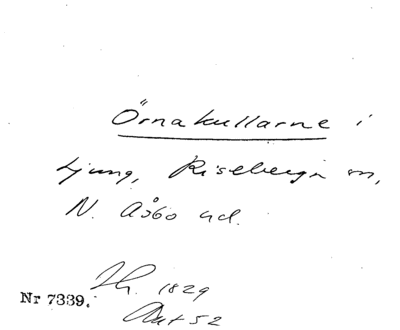 Örnakullarne i
Ljung, Riseberga sn,
N. Åsbo hd.
Jh. 1829
Akt 52
Nr 7339.